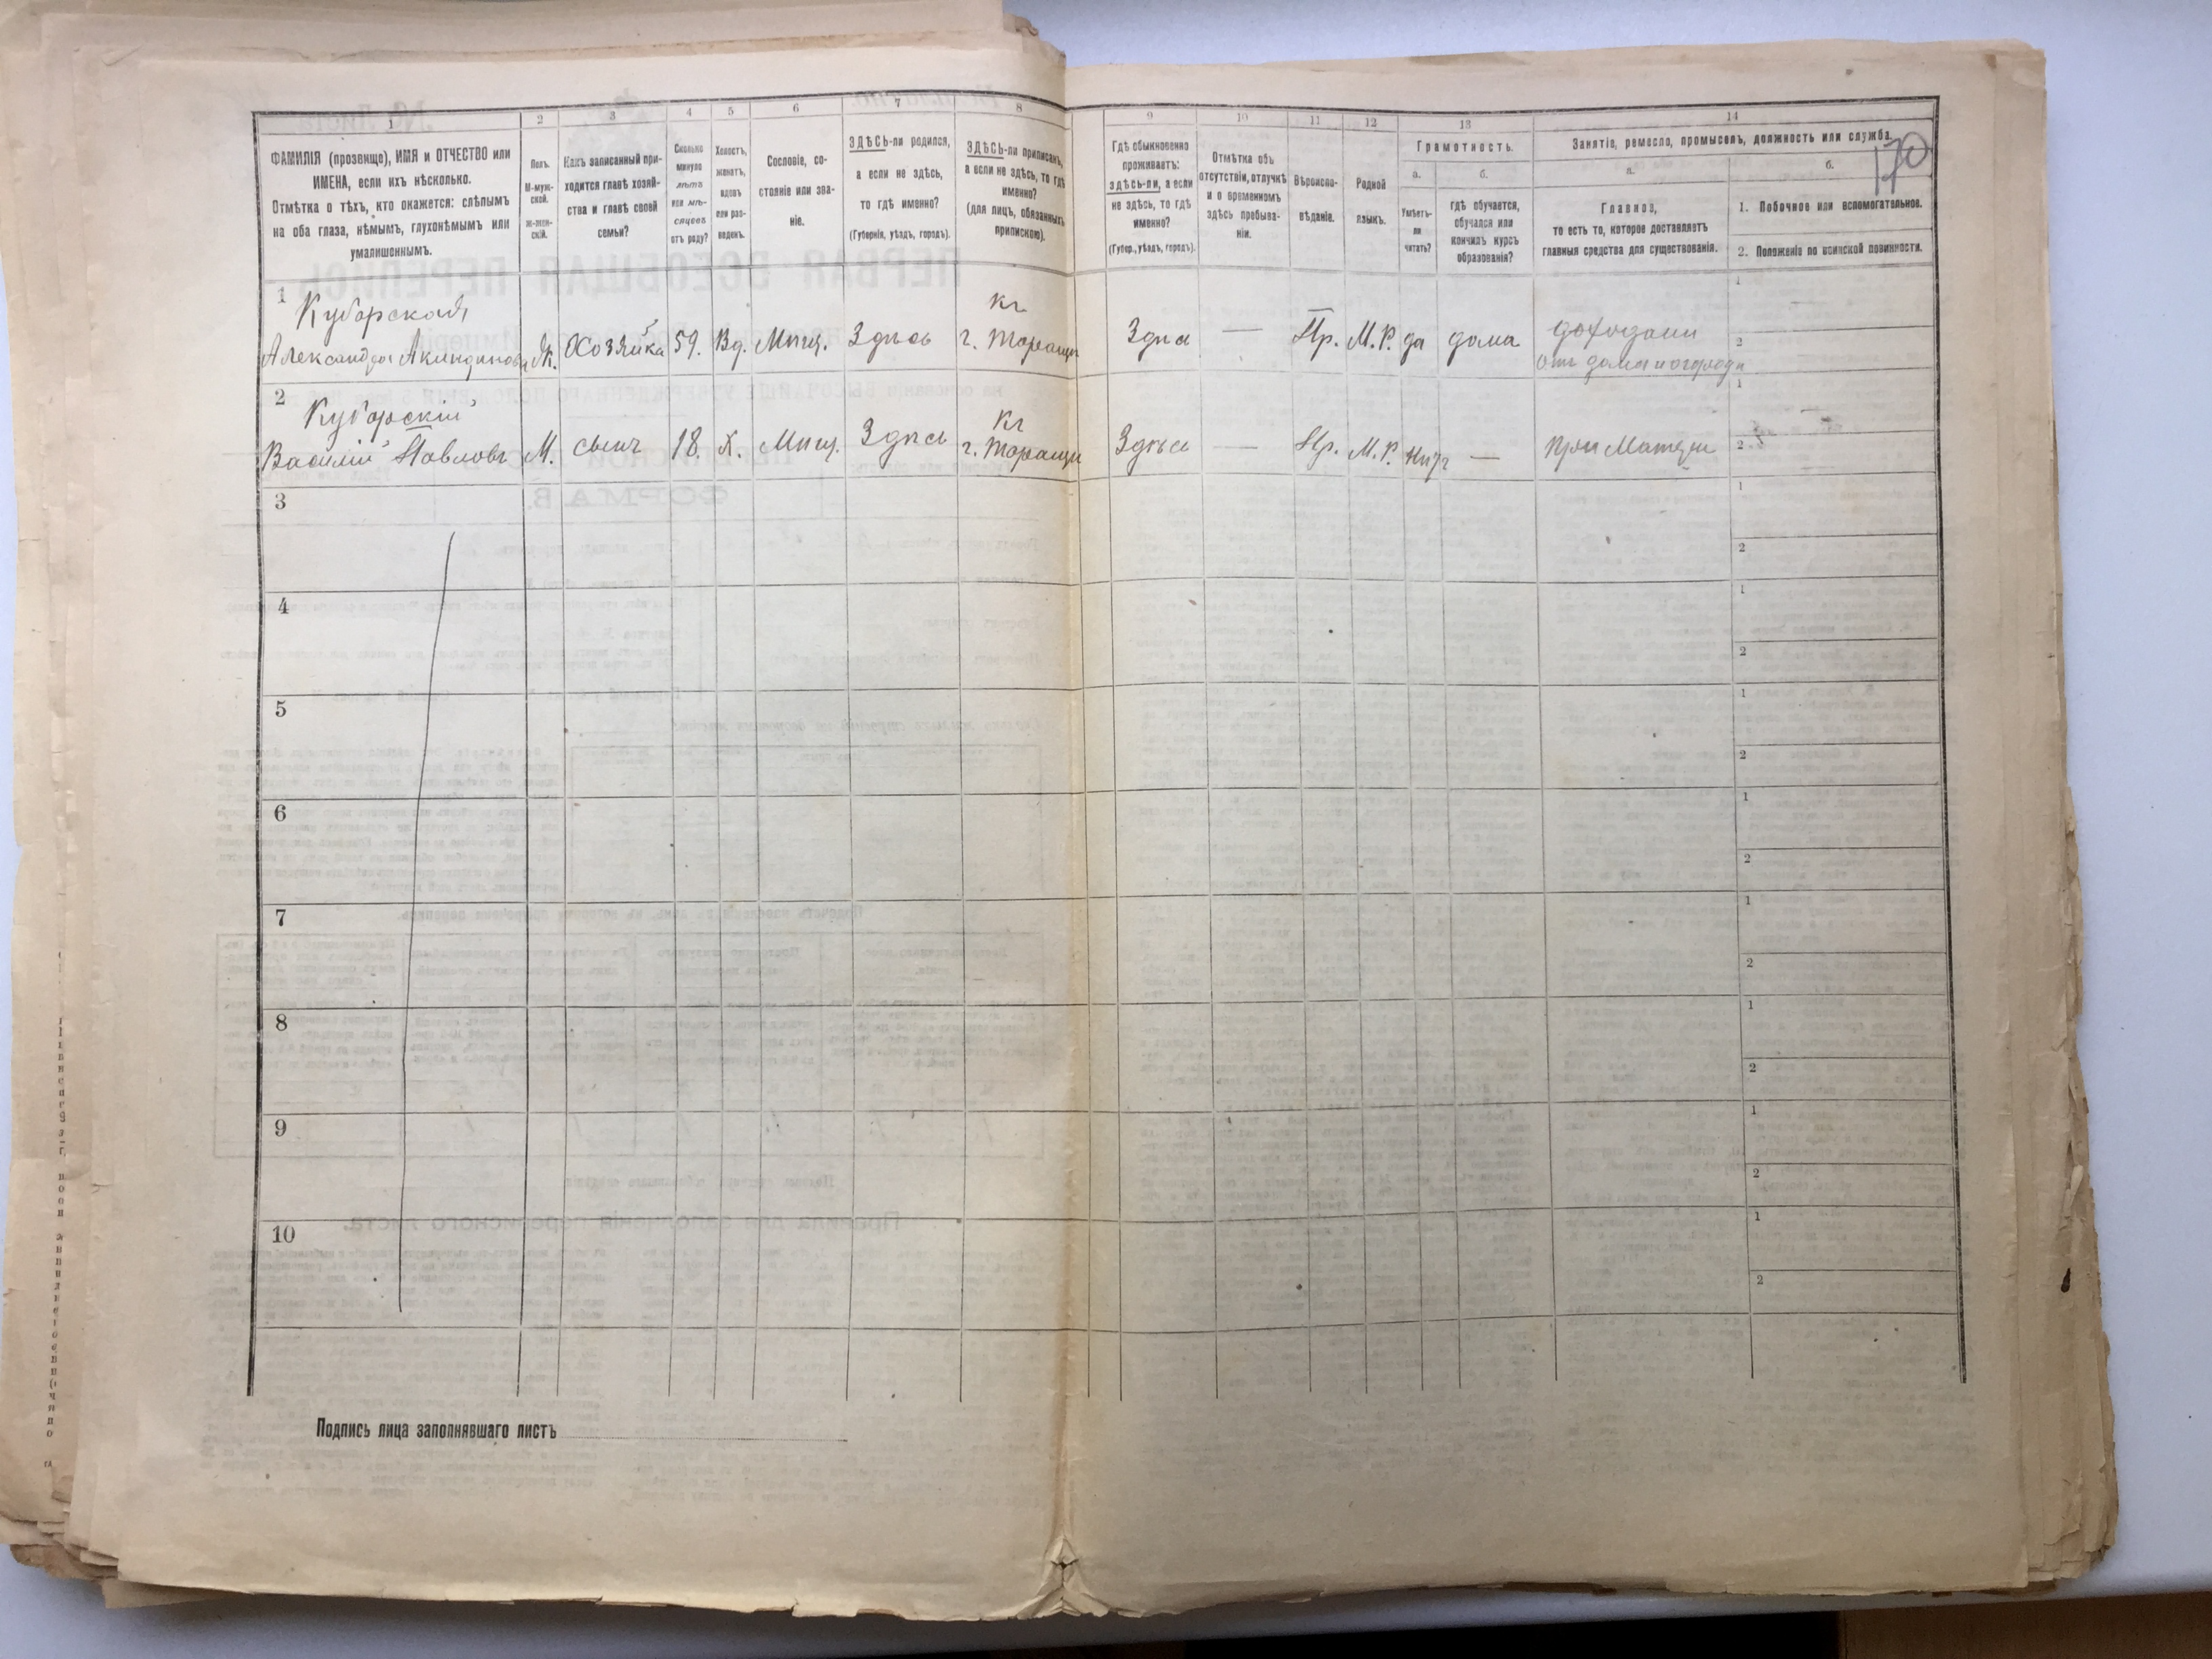 1 2 3 4 5 6 7 8 9 10 11 12 13 14
170
ФАМИЛІЯ (прозвище), ИМЯ и ОТЧЕСТВО или
ИМЕНА, если ихъ нѣсколько.
Отмѣтка о тѣхъ, кто окажется: слѣпымъ
на оба глаза, нѣмымъ, глухонѣмымъ или
умалишеннымъ.
Полъ.
М-муж-
ской.
Ж-жен-
скій.
Какъ записанный при-
ходится главѣ хозяй-
ства и главѣ своей
семьи?
Сколько
минуло
лѣтъ
или мѣ-
сяцевъ
отъ роду?
Холостъ,
женатъ,
вдовъ
или раз-
веденъ.
Сословіе, со-
стояніе или зва-
ніе.
ЗДѢСЬ-ли родился,
а если не здѣсь,
то гдѣ именно?
(Губернія, уѣздъ, городъ).
ЗДѢСЬ-ли приписанъ,
а если не здѣсь, то гдѣ
именно?
(для лицъ, обязанныхъ
припискою).
Гдѣ обыкновенно
проживаетъ:
здѣсь-ли, а если
не здѣсь, то гдѣ
именно?
(Губер., уѣздъ, городъ).
Отмѣтка объ
отсутствіи, отлучкѣ
и о временномъ
здѣсь пребыва-
ніи.
Вѣроиспо-
вѣданіе.
Родной
языкъ.
Грамотность.
а.
Умѣетъ-
ли
читать?
б.
гдѣ обучается,
обучался или
кончилъ курсъ
образованія?
Занятіе, ремесло, промыселъ, должность или служба.
а.
Главное,
то есть то, которое доставляетъ
главныя средства для существованія.
б.
1. Побочное или вспомогательное.
2. Положеніе по воинской повинности.
1
Александра Ж. Хозяйка 59. Вд. Мѣщ. Здѣсь г. Таращи Здѣсь — Пр. М.Р. да дома доходами
отъ дома и огорода
2
Василій Павловъ М. сынъ 18. Х. Мѣщ. Здѣсь г. Таращи Здѣсь — Пр. М.Р. нѣтъ — При Матери
1
2
1
2
3
1
2
4
1
2
5
1
2
6
1
2
7
1
2
8
1
2
9
1
2
10
1
2
Подпись лица заполнявшаго листъ